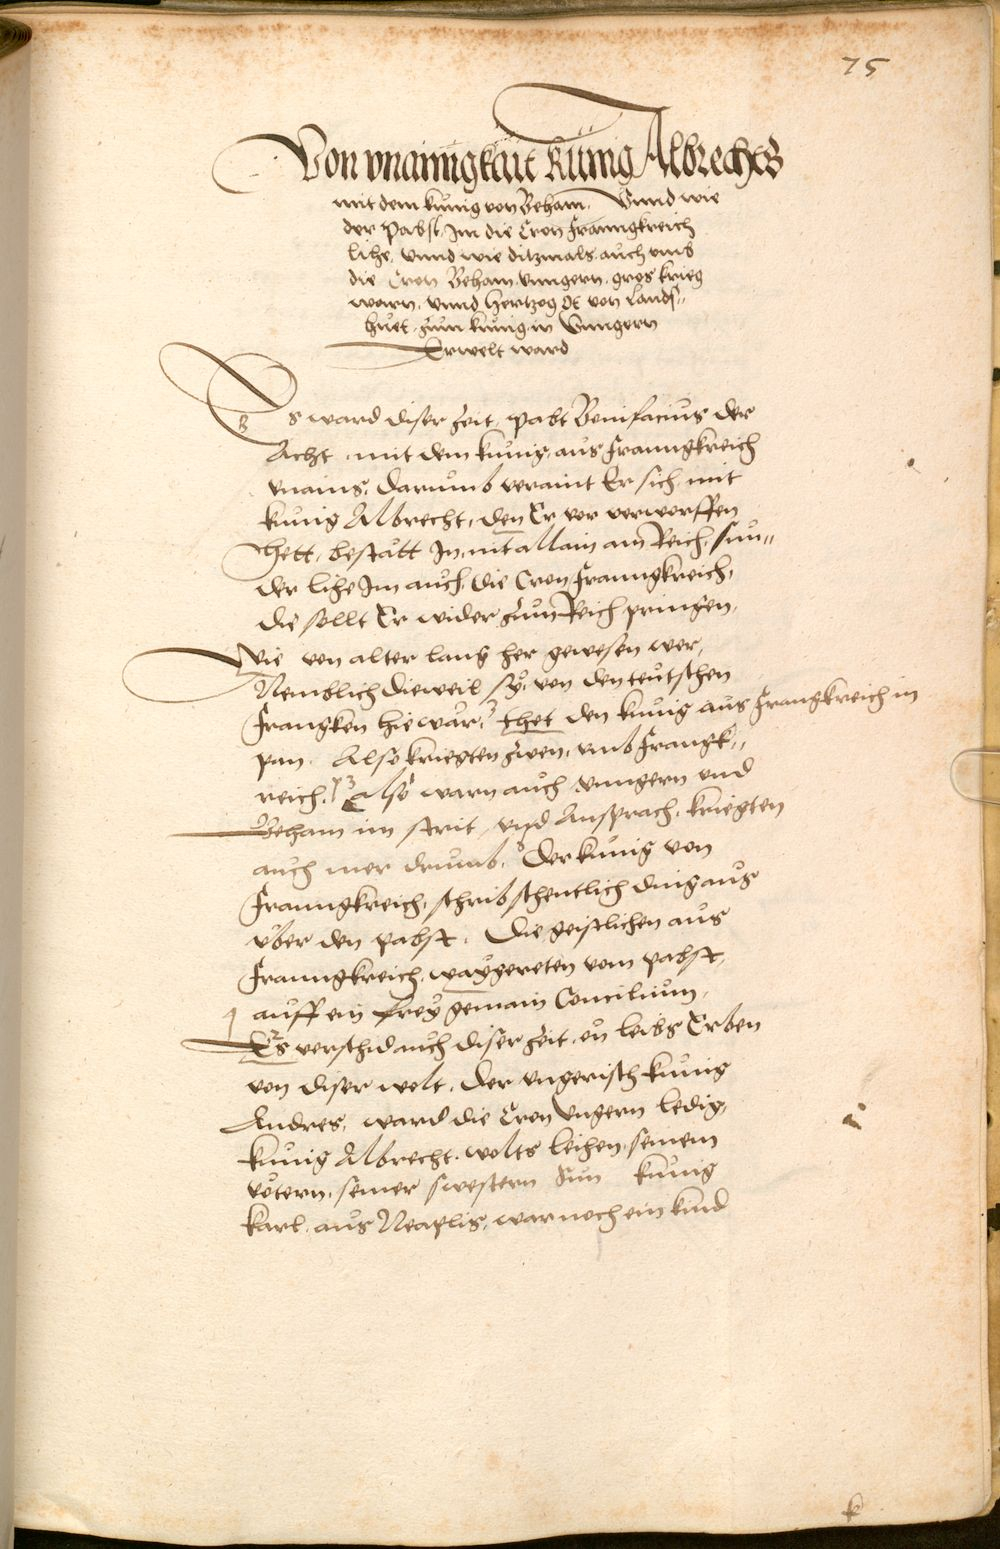 75
Von vnainigkait Künig Albrechts
mit dem künig von Beham. Vnnd wie
der Pabst, Im die Cron Franngkreich
lihe, Vnnd wie ditzmals auch vmb
die Cron Beham, Vnngern, gros krieg
warn, vnnd Hertzog Ot von Lands=
huet, zum künig in Vnngern
Erwelt ward
Es ward diser Zeit, Pabt Bonifacius der
Acht, mit dem künig aus Franngkreich
vnains, darumb veraint Er sich mit
künig Albrecht, den Er vor verworffen
hett, bestätt In, nit allain am Reich, sun=
der lihe Im auch, die Cron Franngkreich,
die sollt Er wider zum Reich pringen,
Wie von alter lang her gewesen wer,
Nemblich dieweil sy, von den teutschen
Frangken hie wär, thet den künig aus Frangkreich in
pan. Also kriegten zwen, vmb Frangk=
reich. Also warn auch Vnngern vnd
Beham im strit, vnd Ansprach, kriegten
auch mer drumb. Der künig von
Franngkreich, schrib schentlich ding aus
über den Pabst. Die geistlichen aus
Franngkreich, waygereten vom Pabst,
auff ein frey gemain Concilium,
Es verschid auch diser Zeit, on leibs Erben
von diser welt, der vngerisch künig
Andres, ward die Cron Vngern ledig,
künig Albrecht, wolts leihen, seinem
vötern, seiner swestern Sun künig
Karl, aus Neaplis, war noch ein kind
k